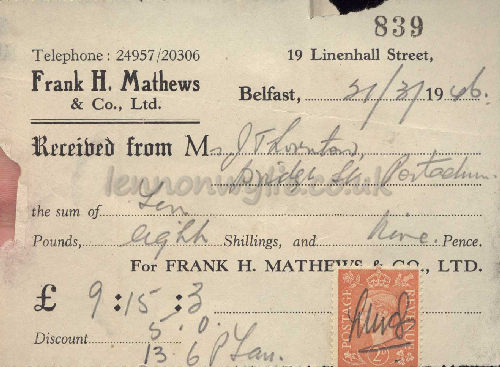 839
Telephone : 24957/20306
19 Linenhall Street,
Frank H. Mathews
& Co., Ltd.
Belfast, 21/3/1946.
Received from Mr J Thornton,
Bridge St Portadown.
lennonwylie.co.uk
the sum of Ten
Pounds, eight Shillings, and Nine Pence.
For FRANK H. MATHEWS & CO., LTD.
£ 9 : 15 : 3
POSTAGE REVENUE
Discount 5. 0.
13 6